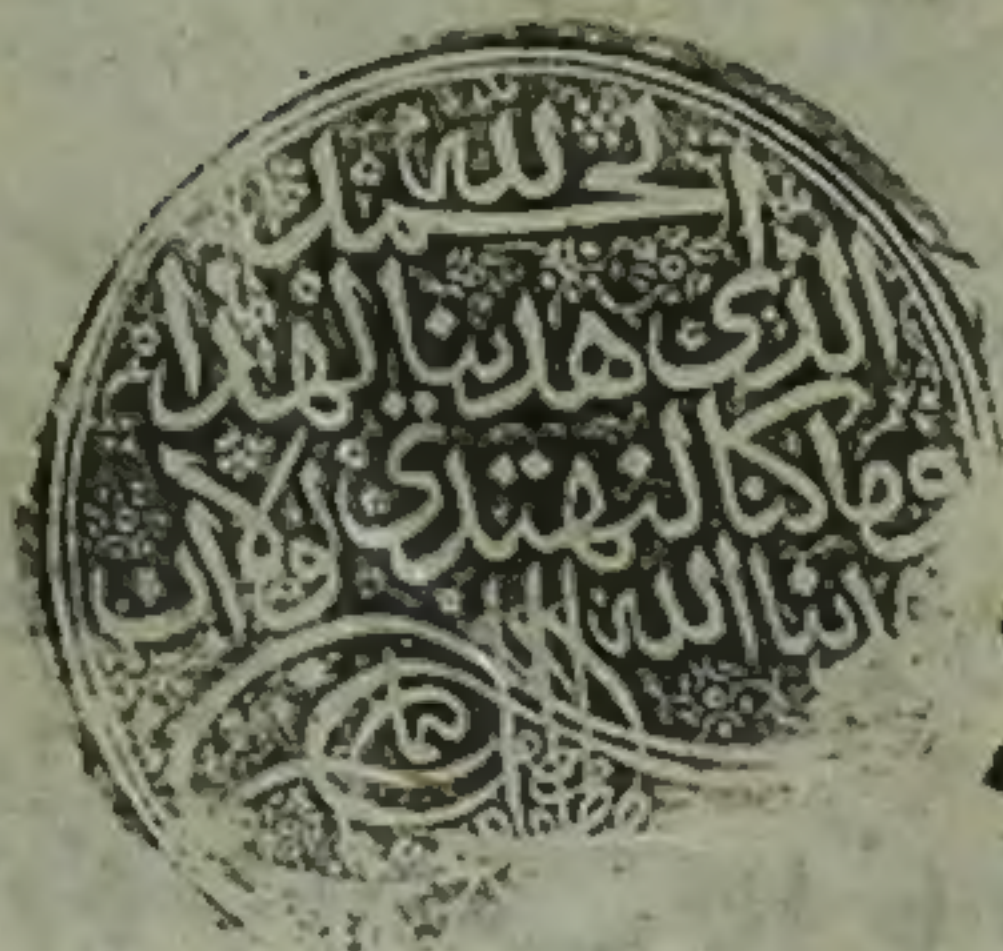 الحمد لله
الذى هدينا لهذا
وما كنا لنهتدي لولا ان
الله